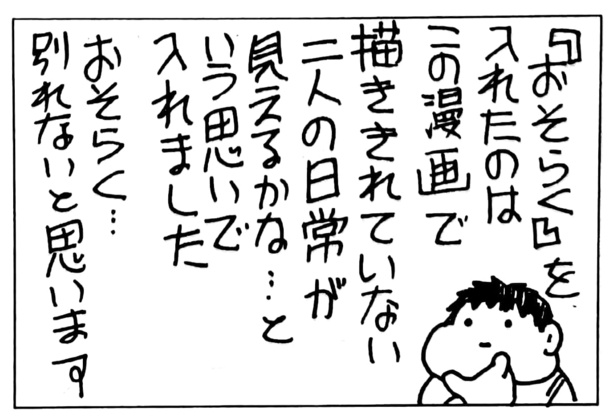 『おそらく』を
入れたのは
この漫画で
描ききれていない
二人の日常が
見えるかな…と
いう思いで
入れました
おそらく…
別れないと思います